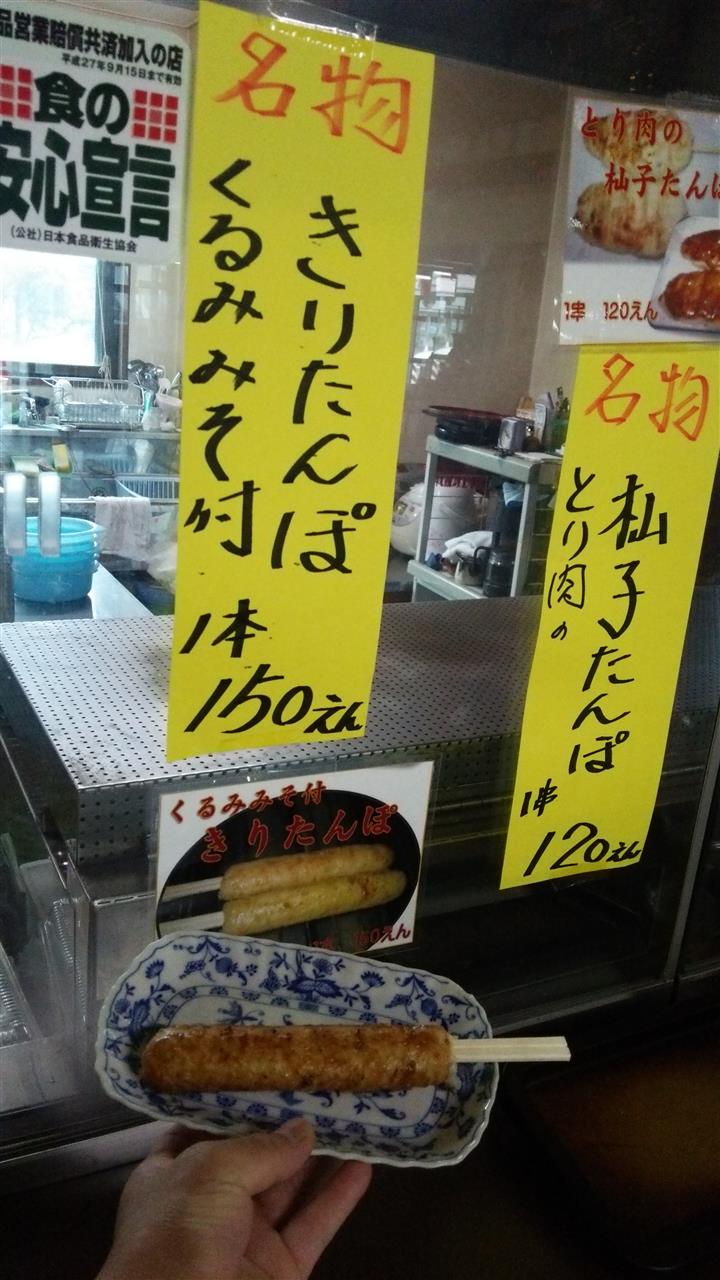 品営業賠償共済加入の店
平成27年9月15日まで有効
食の
安心宣言
(公社)日本食品衛生協会
名物
きりたんぽ
くるみみそ付
1本
150えん
とり肉の
杣子たんぽ
1串 120えん
名物
杣子たんぽ
とり肉の
1串
120えん
くるみみそ付
きりたんぽ
150えん